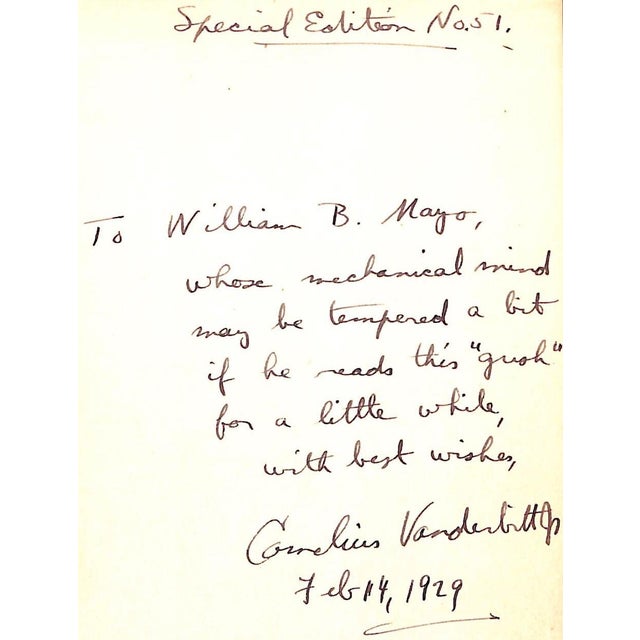 Special Edition No. 51.
To William B. Mayo,
whose mechanical mind
may be tempered a bit
if he reads this "gush"
for a little while,
with best wishes,
Cornelius Vanderbilt Jr
Feb 14, 1929